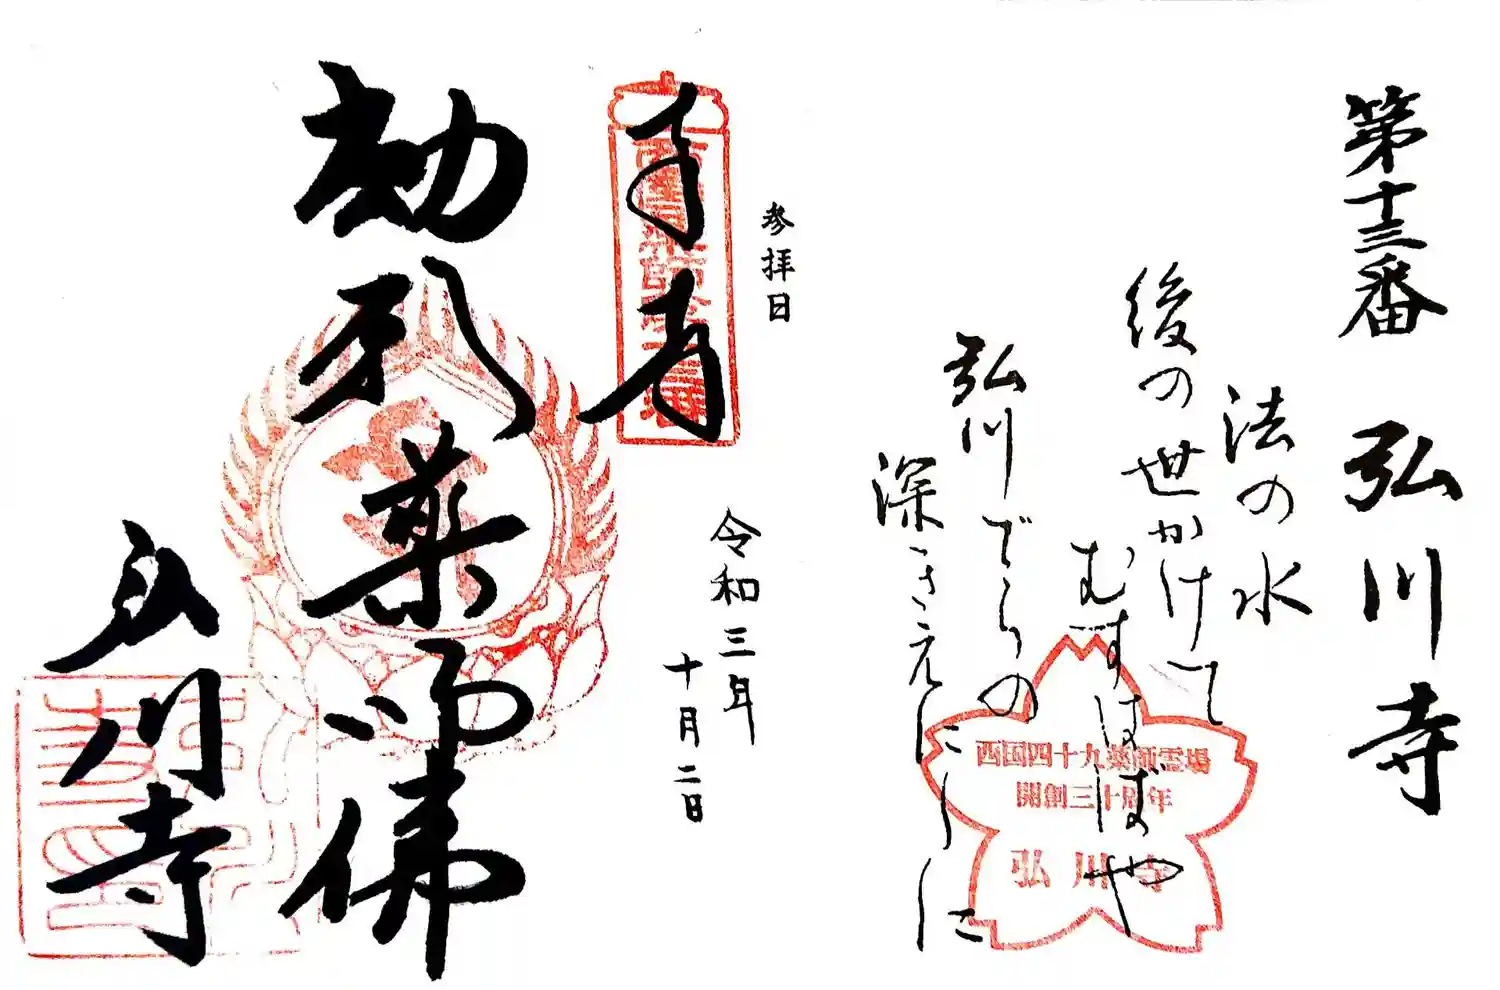 第十三番 弘川寺
法の水
後の世かけて
むすはばや
弘川でらの
深きえにしに
西国四十九薬師霊場
開創三十周年
弘川寺
参拝日
令和三年
十月二日
奉拝
勅願薬師佛
弘川寺